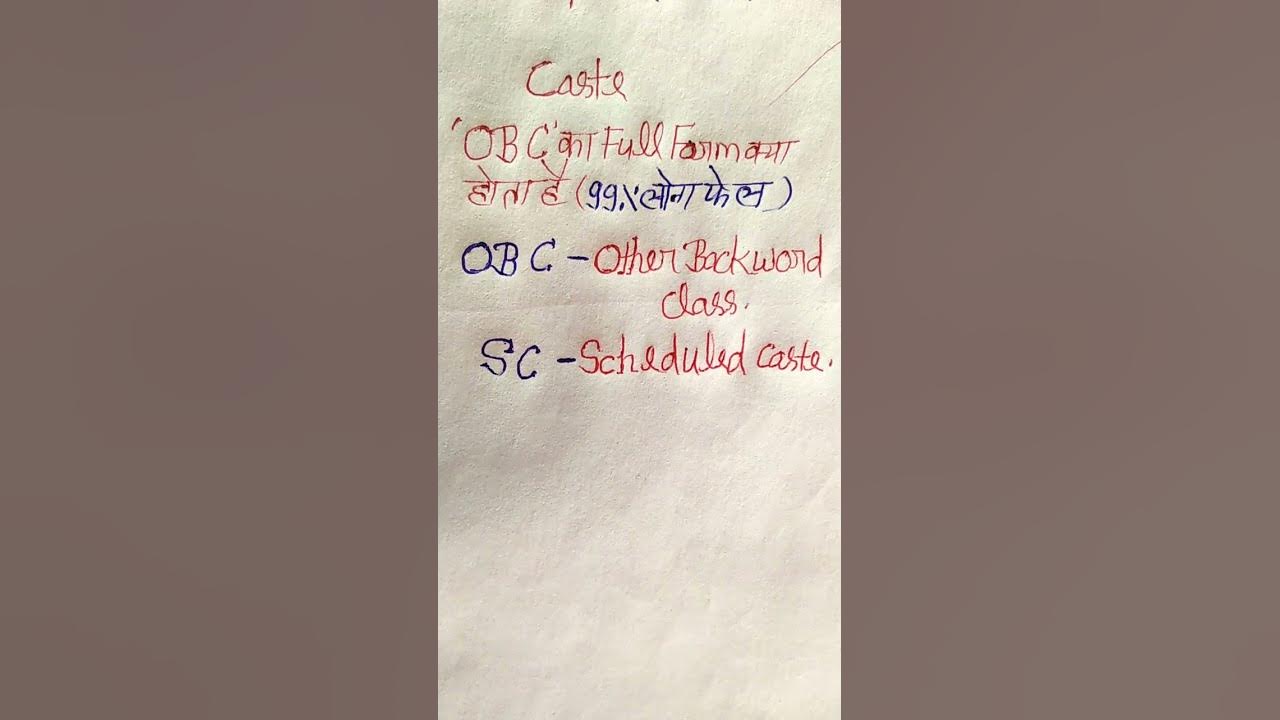 Caste
'OBC' का Full Form क्या
होता है (99% लोग फेल)
OBC - Other Backword
class.
SC - Scheduled caste.